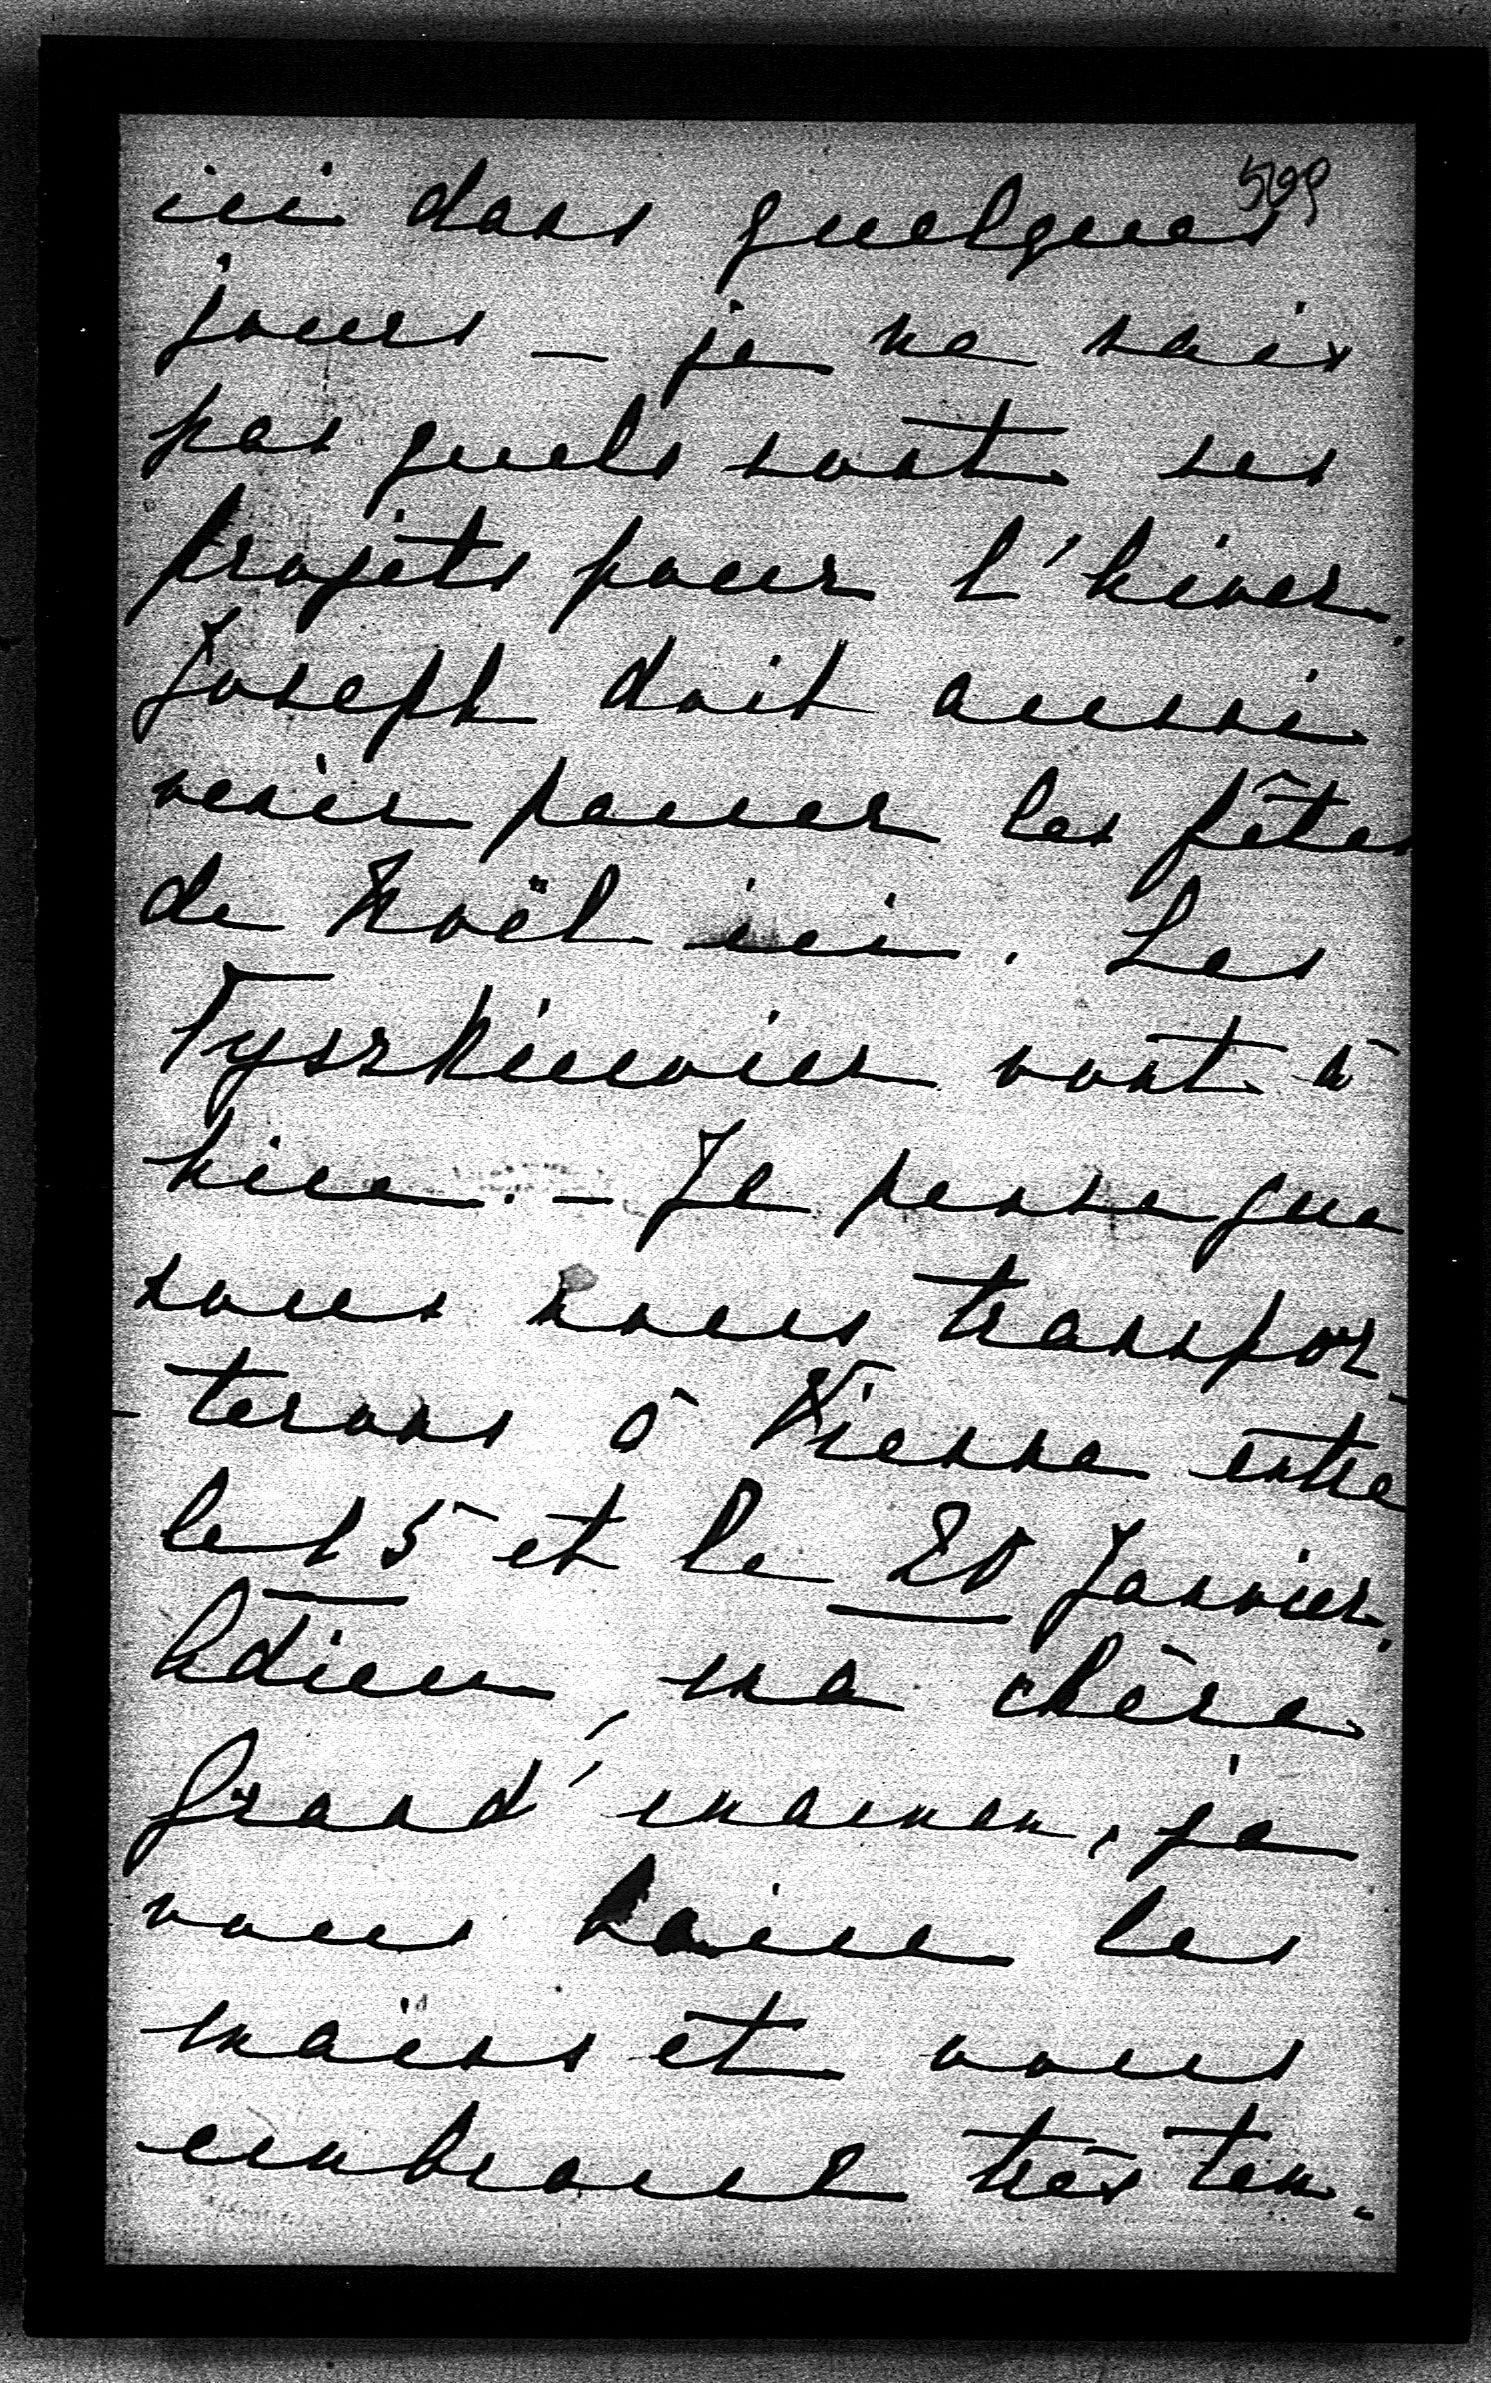 599
ici dans quelques
jours – je ne sais
pas quels sont ses
projets pour l'hiver.
Joseph doit aussi
venir passer les fêtes
de Noël ici. Les
Tyszkiewicz vont à
Je pense que
nous nous transpor-
-terons à Vienne entre
le 15 et le 20 Janvier.
Adieu, ma chère
Grand'maman, je
vous baise les
mains et vous
embrasse très ten-